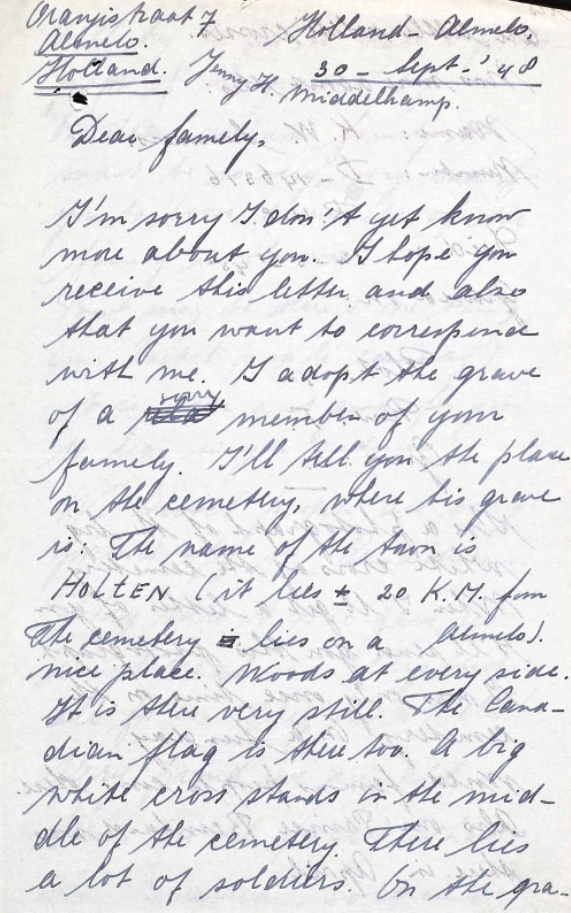 Oranjestraat 7 Holland - Almelo.
Almelo.
Holland. 30 - Sept - '48
Jenny H. Middelkamp.
Dear famely,
I'm sorry I don't yet know
more about you. I hope you
receive this letter and also
that you want to correspond
with me. I adopt the grave
sorry
of a member of your
famely. I'll tell you the place
on the cemetery, where his grave
is. The name of the town is
HOLTEN (it lies ± 20 K.M. from
Almelo).
The cemetery lies on a
nice place. Woods at every side.
It is there very still. The Cana-
dian flag is there too. A big
white cross stands in the mid-
dle of the cemetery. There lies
a lot of soldiers. On the gra-